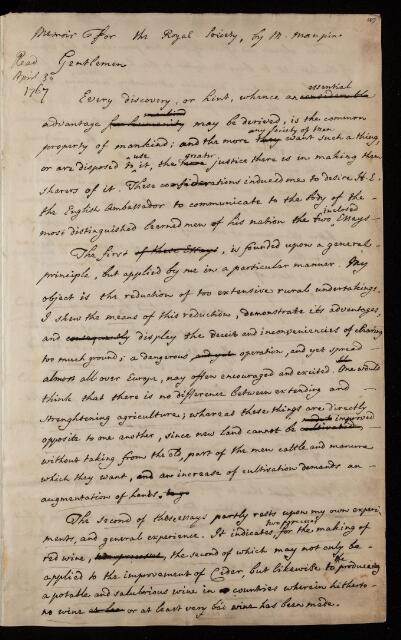 Memoir for the Royal Society, by M. Maupin.
Read
April 30
1767
Gentlemen
essential
Every discovery, or hint, whence an considerable
mankind
advantage for humanity may be derived, is the common
any Society of men
property of mankind; and the more they want such a thing,
use greater
or are disposed to it, the more justice there is in making them
sharers of it. These considerations induced me to desire H. E.
the English Ambassador to communicate to the body of the
inclosed
most distinguished learned men of his nation the two Essays
The first of these Essays, is founded upon a general
principle, but applied by me in a particular manner. My
object is the reduction of too extensive rural undertakings.
I shew the means of this reduction, demonstrate its advantages,
and consequently display the deceit and inconveniencies of clearing
too much ground; a dangerous operation, and yet spread
almost all over Europe, nay often encouraged and excited. One would
think that there is no difference between extending and
strenghtening agriculture; whereas these things are directly
improved
opposite to one another, since new land cannot be cultivated,
without taking from the old, part of the men cattle and manure
which they want, and an increase of cultivation demands an
augmentation of hands.
The Second of these essays partly rests upon my own experi-
two processes
ments, and general experience. It indicates, for the making of
red wine, two processes, the second of which may not only be
the
applied to the improvement of Cider, but likewise to producing
a potable and salubrious wine in countries wherein hitherto
no wine or at least very bad wine has been made.